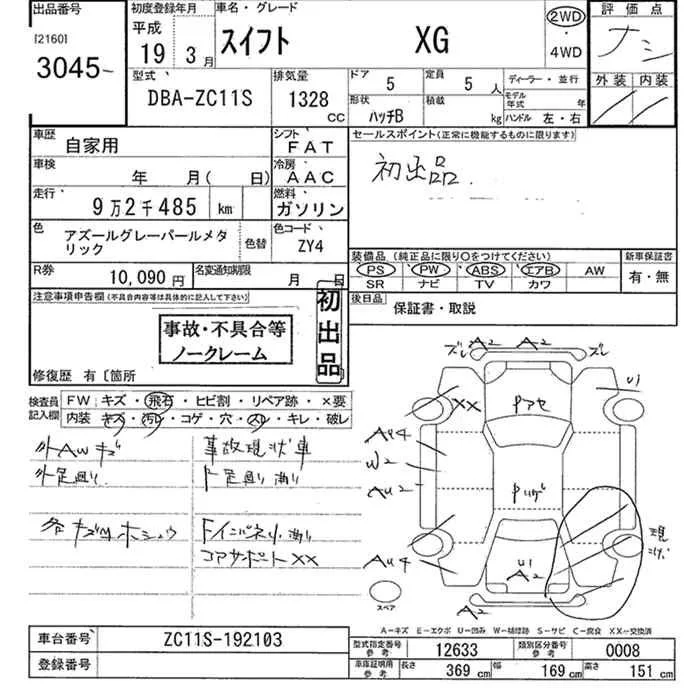 出品番号
[2160]
3045
初度登録年月
平成 19年 3月
車名・グレード
スイフト XG
2WD
・
4WD
評価点
ナシ
外装 内装
型式
DBA-ZC11S
排気量
1328 CC
ドア 5
定員 5 人
ディーラー・並行
形状 ハッチB
積載 kg
モデル年式 年
ハンドル 左・右
車歴 自家用
シフト FAT
セールスポイント(正常に機能するものに限ります)
初出品
車検 年 月( 日)
冷房 AAC
走行 9万2千485 km
燃料 ガソリン
色 アズールグレーパールメタリック
色替
色コード ZY4
装備品 (純正品に限り○をつけてください)
新車保証書
PS PW ABS エアB AW
SR ナビ TV カワ
有・無
R券 10,090円
名変通知期限 月 日
後日品 保証書・取説
注意事項申告欄(不具合内容等は具体的に記入して下さい)
初出品
事故・不具合等
ノークレーム
修復歴 有〔箇所
検査員記入欄
FW キズ・飛石・ヒビ割・リペア跡・×要
内装 キズ・汚れ・コゲ・穴・スレ・キレ・破レ
外AWキズ
外足廻り
各キズMホシュウ
事故現状車
下足廻り
コアサポートXX
ズレ A2 A2 ズレ
XX
U1
Pアセ
W2
AU2
U1
A2
A2
スペア
A-キズ E-エクボ U-凹み W-補修跡 S-サビ C-腐食 XX-交換済
車台番号 ZC11S-192103
登録番号
型式指定番号参考 12633
類別区分番号参考 0008
車庫証明用参考 長さ 369 cm 幅 169 cm 高さ 151 cm